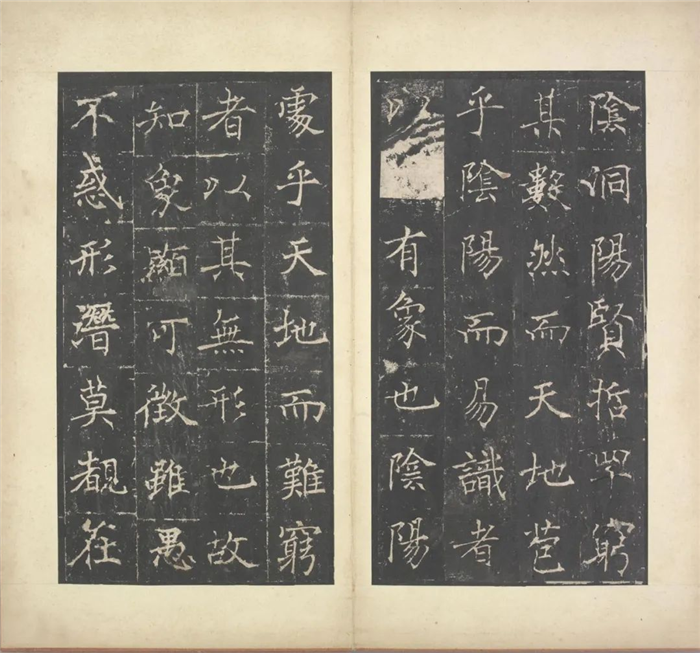 陰洞陽賢哲罕窮
其數然而天地苞
乎陰陽而易識者
以有象也陰陽
處乎天地而難窮
者以其無形也故
知象顯可徵雖愚
不惑形潛莫覩在